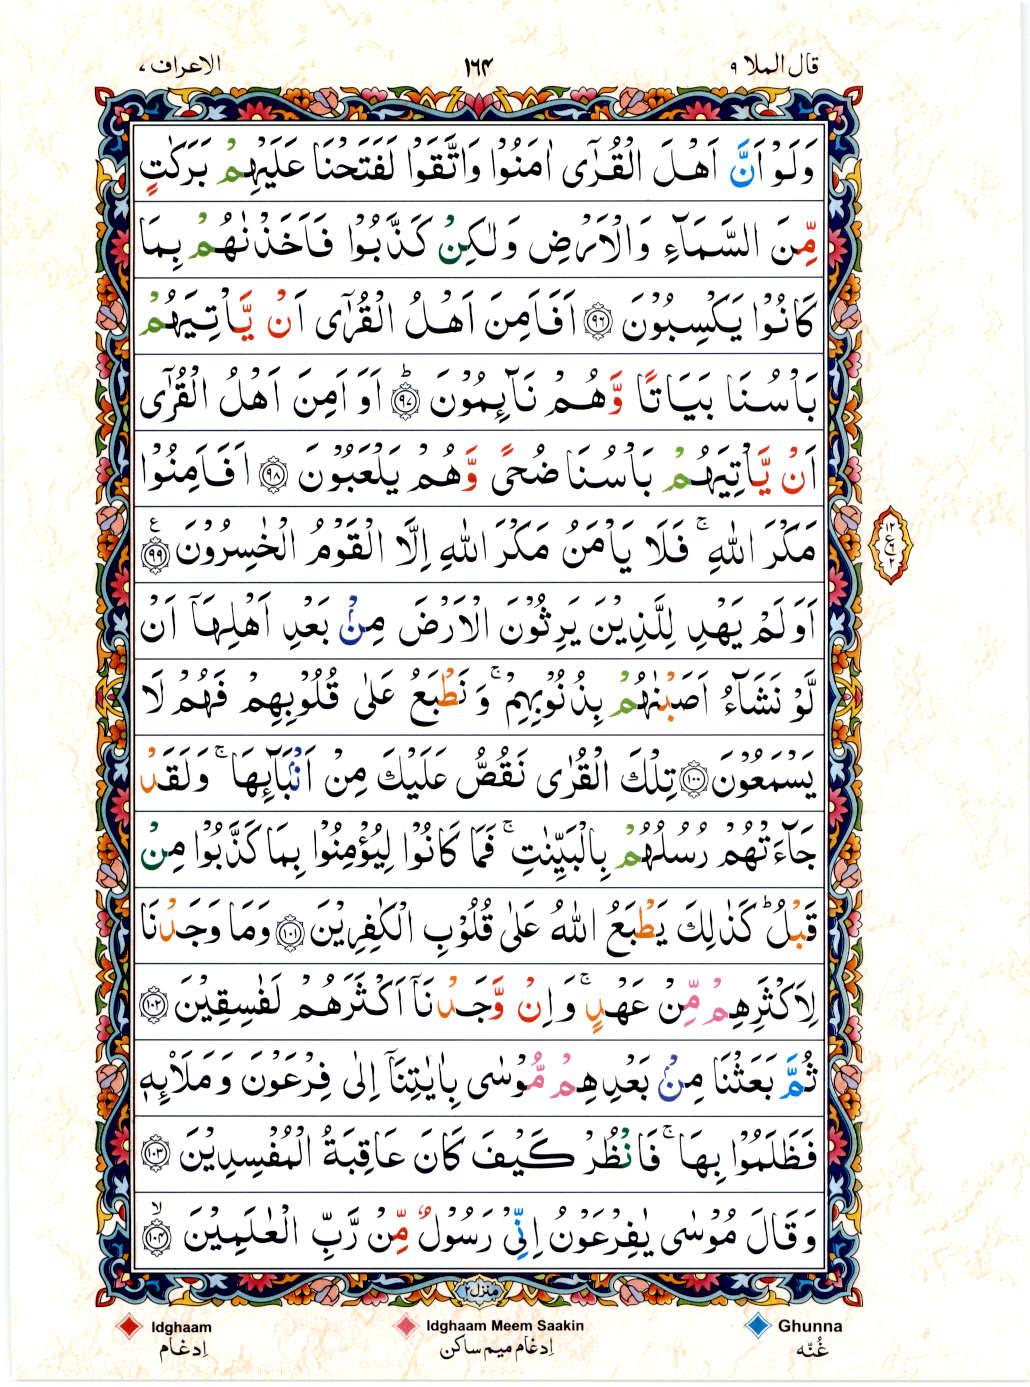 قال الملا ٩
١٦٤
الاعراف ٧
وَلَوْ اَنَّ اَهْلَ الْقُرٰٓى اٰمَنُوْا وَاتَّقَوْا لَفَتَحْنَا عَلَيْهِمْ بَرَكٰتٍ
مِّنَ السَّمَآءِ وَالْاَرْضِ وَلٰكِنْ كَذَّبُوْا فَاَخَذْنٰهُمْ بِمَا
كَانُوْا يَكْسِبُوْنَ ﴿٩٦﴾ اَفَاَمِنَ اَهْلُ الْقُرٰٓى اَنْ يَّاْتِيَهُمْ
بَاْسُنَا بَيَاتًا وَّهُمْ نَآئِمُوْنَ ؕ﴿٩٧﴾ اَوَ اَمِنَ اَهْلُ الْقُرٰٓى
اَنْ يَّاْتِيَهُمْ بَاْسُنَا ضُحًى وَّهُمْ يَلْعَبُوْنَ ﴿٩٨﴾ اَفَاَمِنُوْا
مَكْرَ اللّٰهِ ۚ فَلَا يَاْمَنُ مَكْرَ اللّٰهِ اِلَّا الْقَوْمُ الْخٰسِرُوْنَ ﴿٩٩﴾ ع
١٢
ع ٦
٢
اَوَلَمْ يَهْدِ لِلَّذِيْنَ يَرِثُوْنَ الْاَرْضَ مِنْۢ بَعْدِ اَهْلِهَاۤ اَنْ
لَّوْ نَشَآءُ اَصَبْنٰهُمْ بِذُنُوْبِهِمْ ۚ وَنَطْبَعُ عَلٰى قُلُوْبِهِمْ فَهُمْ لَا
يَسْمَعُوْنَ ﴿١٠٠﴾ تِلْكَ الْقُرٰى نَقُصُّ عَلَيْكَ مِنْ اَنْۢبَآئِهَا ۚ وَلَقَدْ
جَآءَتْهُمْ رُسُلُهُمْ بِالْبَيِّنٰتِ ۚ فَمَا كَانُوْا لِيُؤْمِنُوْا بِمَا كَذَّبُوْا مِنْ
قَبْلُ ؕ كَذٰلِكَ يَطْبَعُ اللّٰهُ عَلٰى قُلُوْبِ الْكٰفِرِيْنَ ﴿١٠١﴾ وَمَا وَجَدْنَا
لِاَكْثَرِهِمْ مِّنْ عَهْدٍ ۚ وَاِنْ وَّجَدْنَاۤ اَكْثَرَهُمْ لَفٰسِقِيْنَ ﴿١٠٢﴾
ثُمَّ بَعَثْنَا مِنْۢ بَعْدِهِمْ مُّوْسٰى بِاٰيٰتِنَاۤ اِلٰى فِرْعَوْنَ وَمَلَا۟ئِهٖ
فَظَلَمُوْا بِهَا ۚ فَانْظُرْ كَيْفَ كَانَ عَاقِبَةُ الْمُفْسِدِيْنَ ﴿١٠٣﴾
وَقَالَ مُوْسٰى يٰفِرْعَوْنُ اِنِّىْ رَسُوْلٌ مِّنْ رَّبِّ الْعٰلَمِيْنَ ۙ﴿١٠٤﴾
منزل ٢
Idghaam
اِدغام
Idghaam Meem Saakin
اِدغام میم ساکن
Ghunna
غُنّه